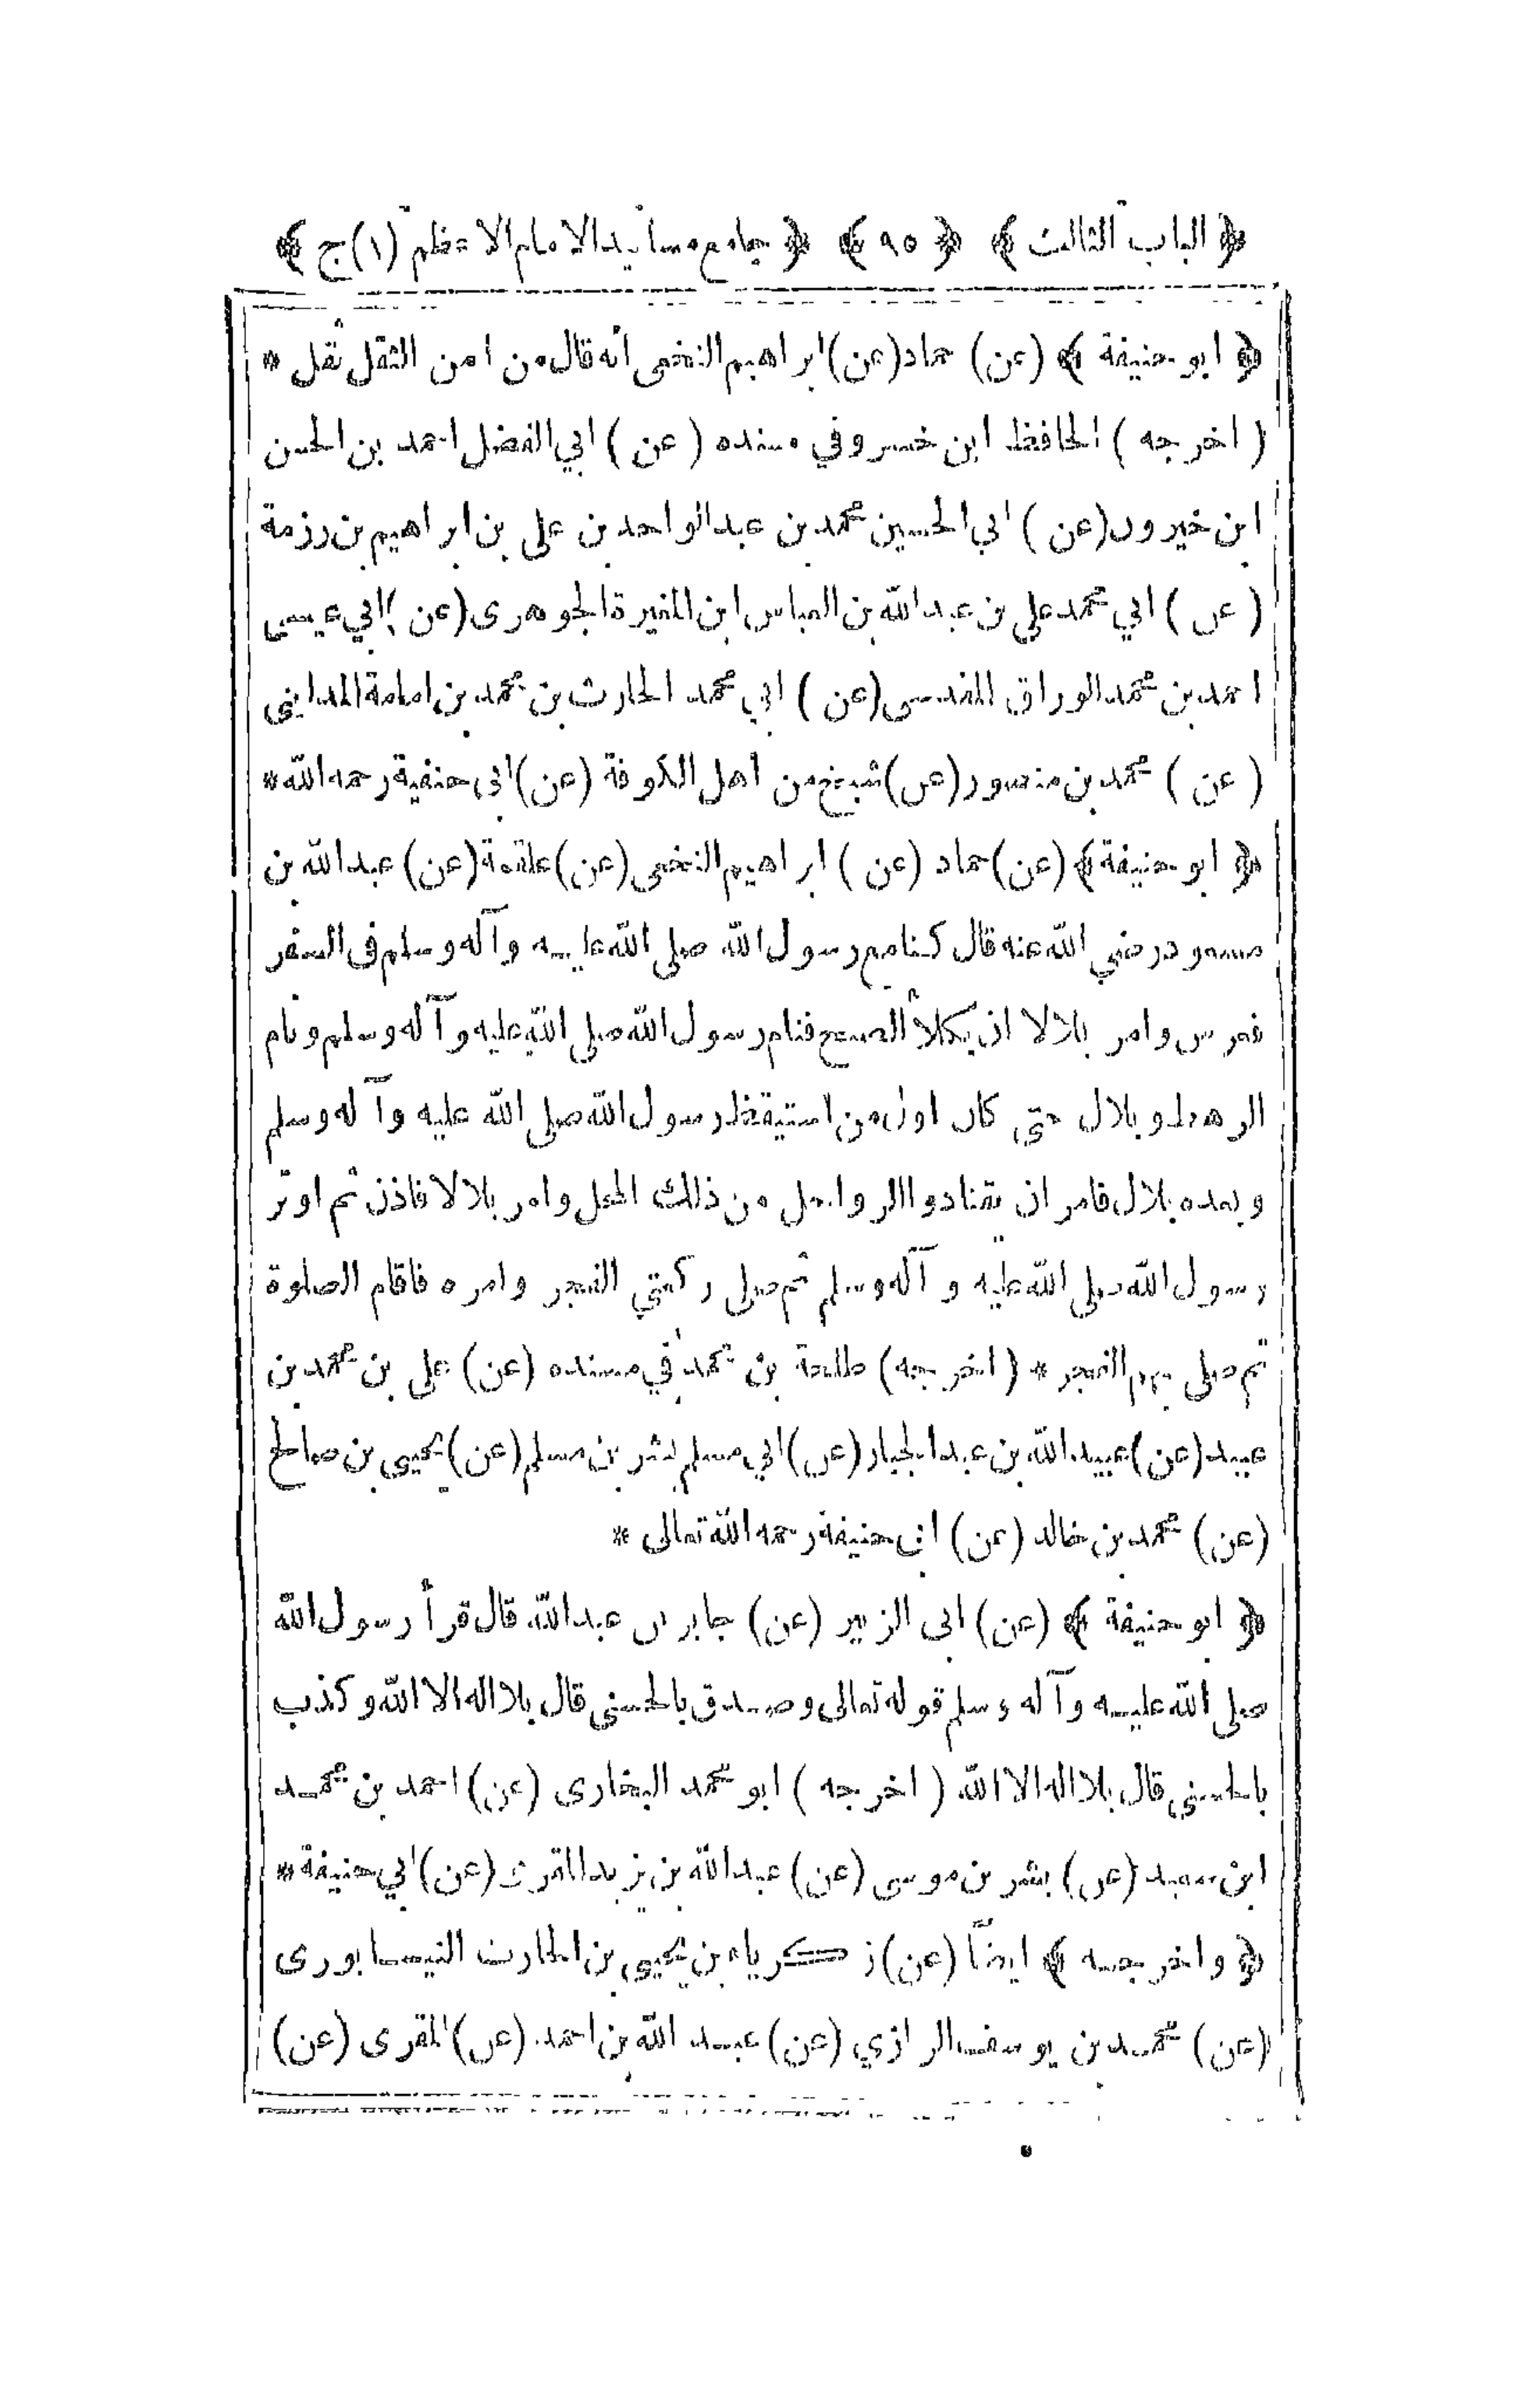 ﴿ الباب الثالث ﴾ ﴿ ٩٥ ﴾ ﴿ جامع مسانيد الامام الاعظم (١) ج ﴾
﴿ ابو حنيفة ﴾ (عن) حماد (عن) ابراهيم النخعى انه قال من امن الثقل ثقل *
( اخرجه ) الحافظ ابن خسرو في مسنده ( عن ) ابي الفضل احمد بن الحسن
ابن خيرون (عن ) ابي الحسين محمد بن عبد الواحد بن علي بن ابراهيم بن رزمة
( عن ) ابي محمد علي بن عبد الله بن العباس ابن المغيرة الجوهرى (عن ) ابي عيسى
احمد بن محمد الوراق المقدسى (عن ) ابي محمد الحارث بن محمد بن امامة المدايني
( عن ) محمد بن منصور (عن) شيخ من اهل الكوفة (عن) ابى حنفية رحمه الله *
﴿ ابو حنيفة ﴾ (عن) حماد (عن ) ابراهيم النخعى (عن) علقمة (عن) عبد الله بن
مسعود رضي الله عنه قال كنا مع رسول الله صلى الله عليه وآله وسلم فى السفر
فعرس وامر بلالا ان يكلأ الصبح فنام رسول الله صلى الله عليه وآله وسلم ونام
الرهط وبلال حتى كان اول من استيقظ رسول الله صلى الله عليه وآله وسلم
وبعده بلال فامر ان يقتادوا الرواحل من ذلك المحل وامر بلالا فاذن ثم اوتر
رسول الله صلى الله عليه وآله وسلم ثم صلى ركعتي الفجر وامره فاقام الصلوة
ثم صلى بهم الفجر * ( اخرجه) طلحة بن محمد في مسنده (عن) علي بن محمد بن
عبيد (عن) عبيد الله بن عبد الجبار (عن) ابي مسلم بشر بن مسلم (عن) يحيى بن صالح
(عن) محمد بن خالد (عن) ابى حنيفة رحمه الله تعالى *
﴿ ابو حنيفة ﴾ (عن) ابى الزبير (عن) جابر بن عبد الله قال قرأ رسول الله
صلى الله عليه وآله وسلم قوله تعالى وصدق بالحسنى قال بلا اله الا الله وكذب
بالحسنى قال بلا اله الا الله ( اخرجه ) ابو محمد البخارى (عن) احمد بن محمد
ابن سعيد (عن) بشر بن موسى (عن) عبد الله بن يزيد المقرئ (عن) ابي حنيفة *
﴿ واخرجه ﴾ ايضاً (عن) زكرياء بن يحيى بن الحارث النيسابورى
(عن) محمد بن يوسف الرازي (عن) عبيد الله بن احمد (عن) المقرى (عن)